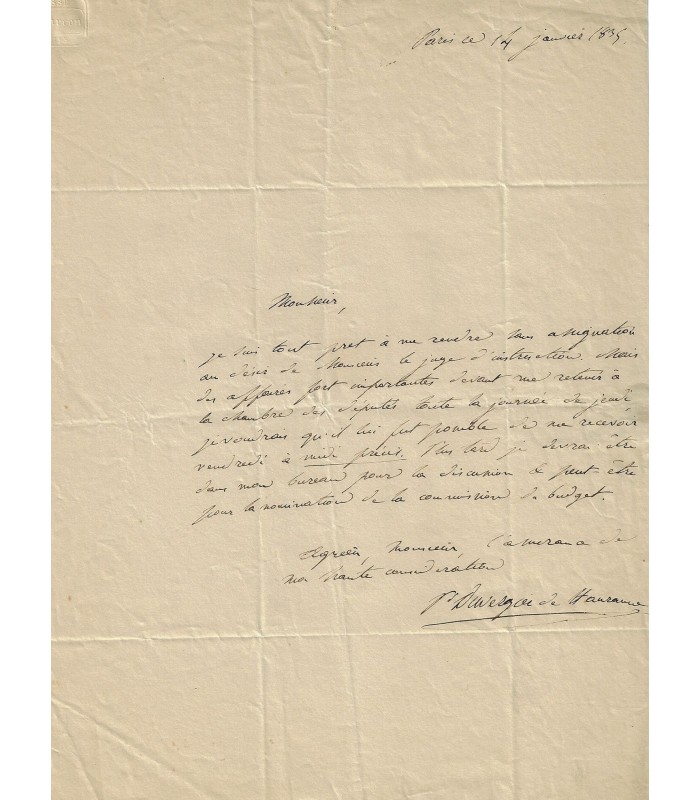 Paris ce 14 janvier 1835.
Monsieur,
je suis tout pret à me rendre sans assignation
au désir de Monsieur le juge d'instruction. Mais
des affaires fort importantes devant me retenir à
la chambre des députés toute la journée de jeudi
je voudrais qu'il lui fut possible de me recevoir
vendredi à midi précis. Plus tard je devrai être
dans mon bureau pour la discussion & peut être
pour la nomination de la commission du budget.
Agréez, Monsieur, l'assurance de
ma haute considération
Pr Duvergier de Hauranne